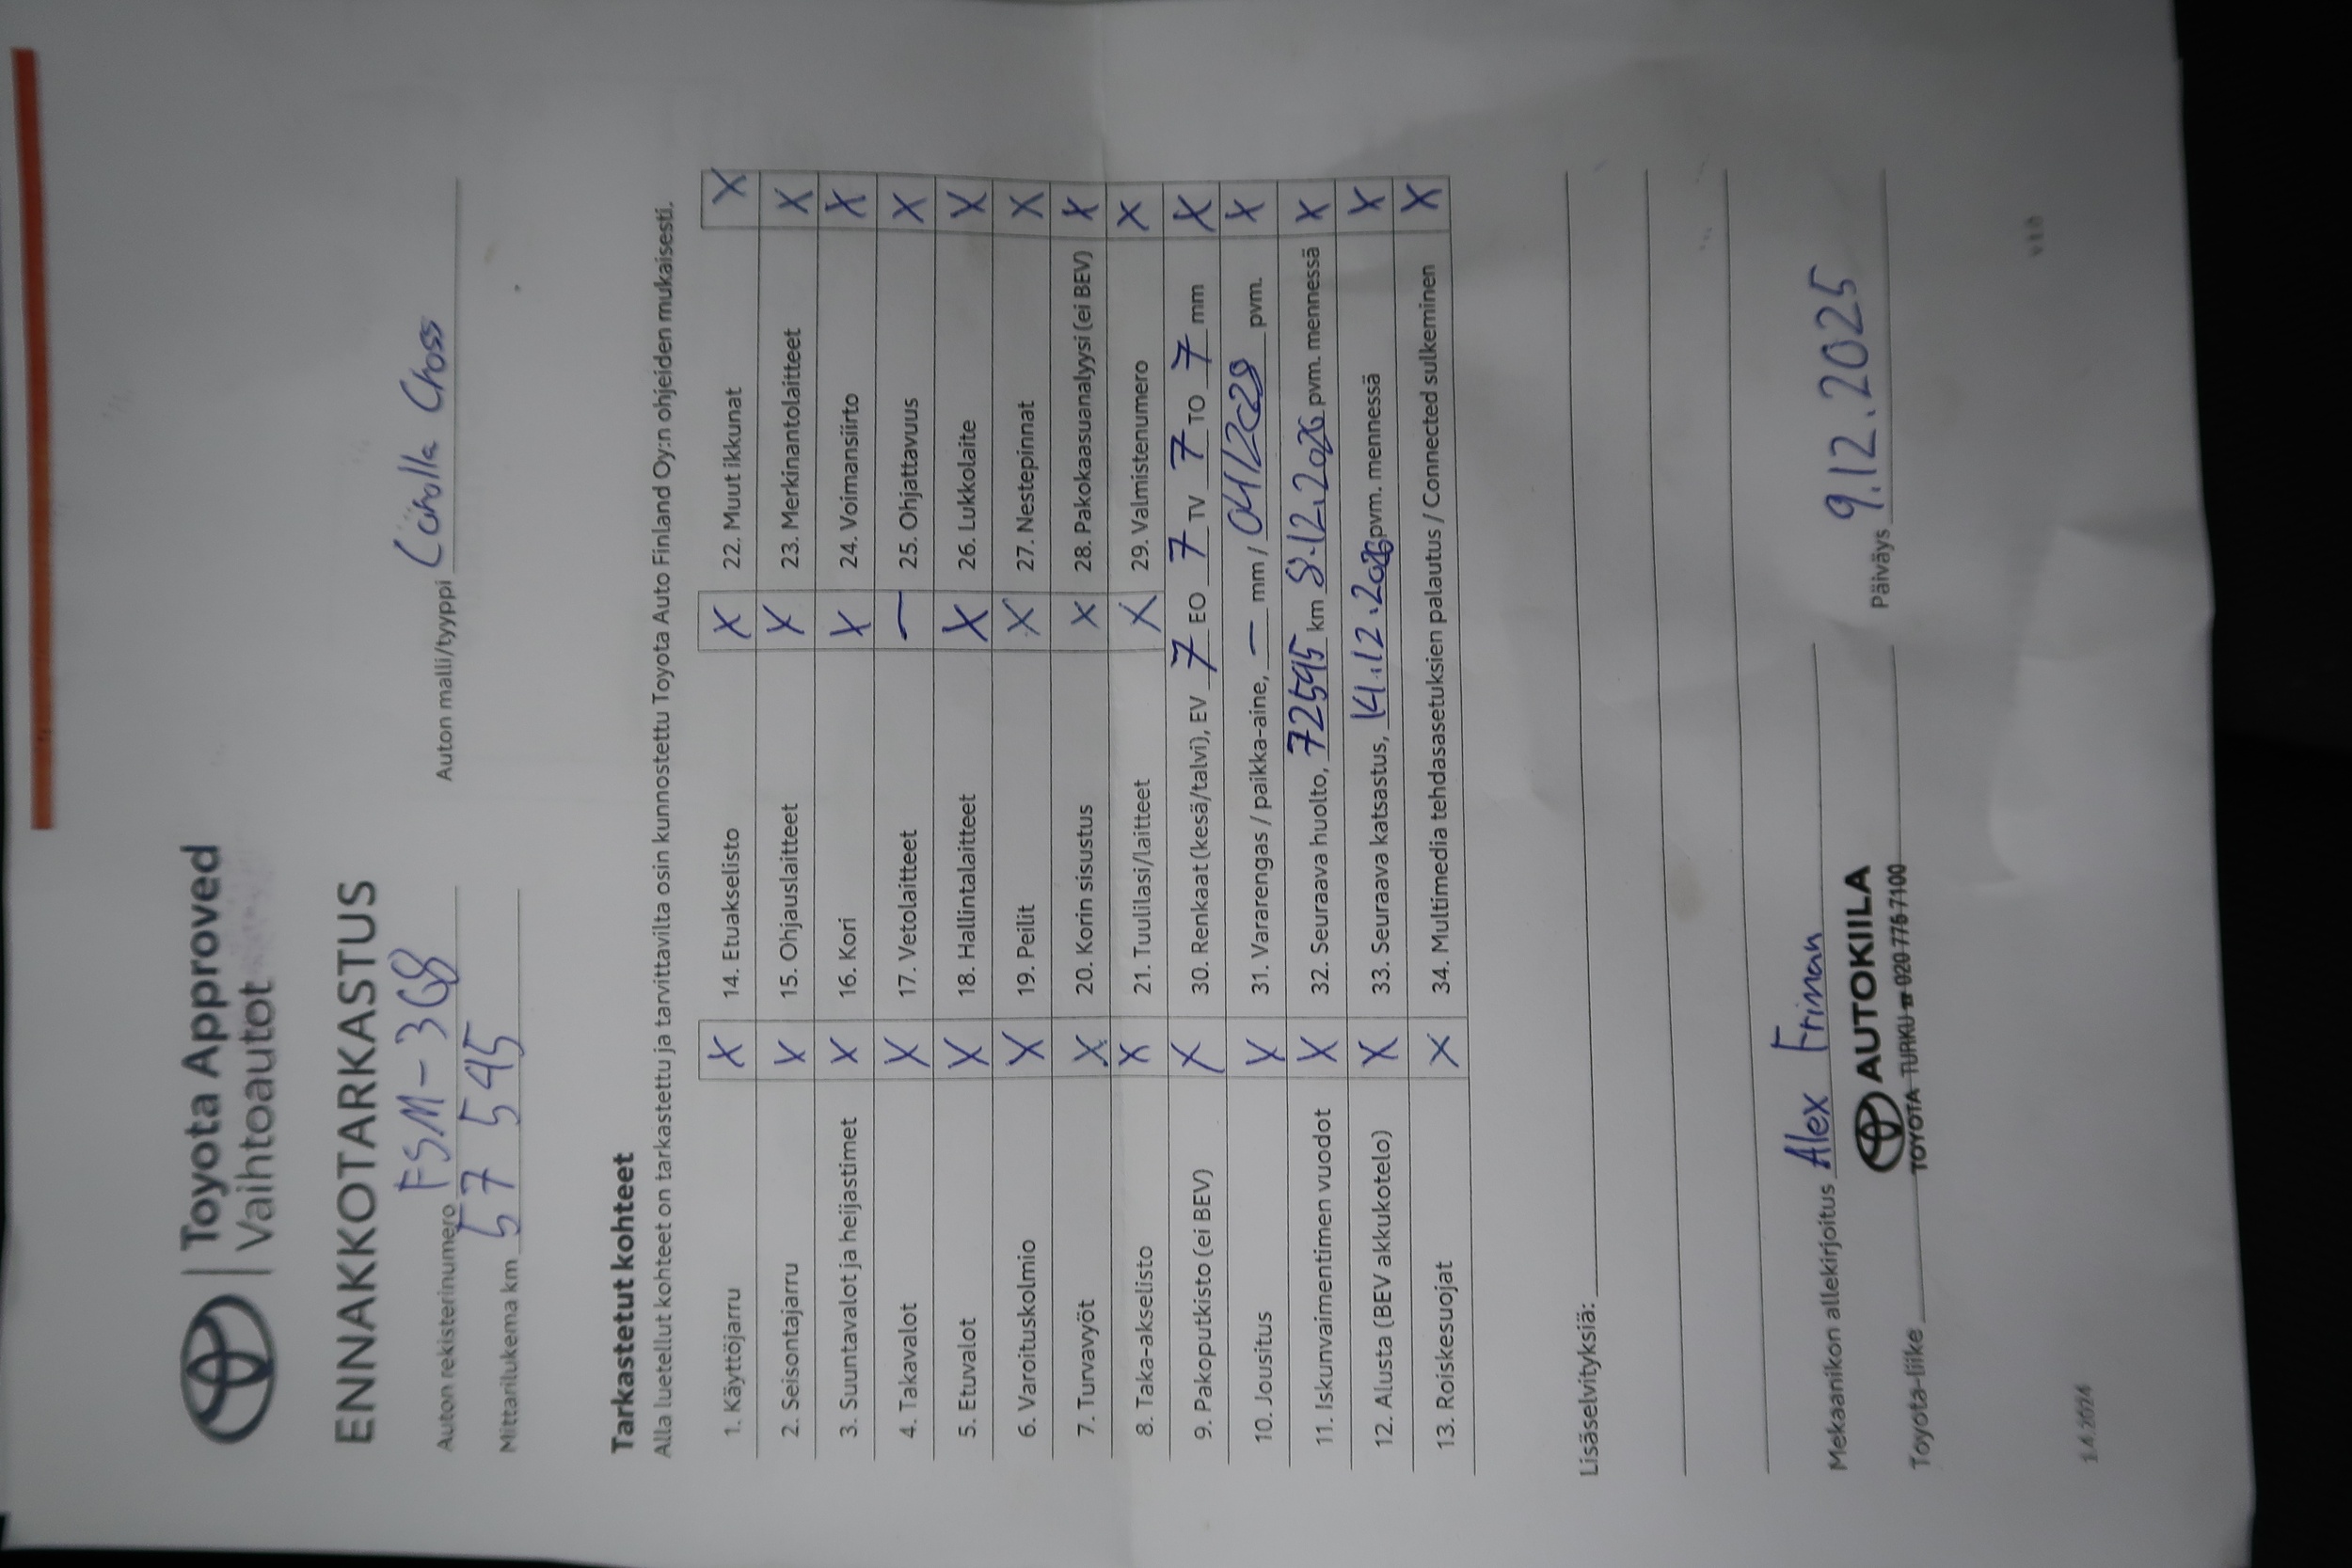 Toyota Approved
Vaihtoautot
ENNAKKOTARKASTUS
Auton rekisterinumero FSM-368 Auton malli/tyyppi Corolla Cross
Mittarilukema km 57 595
Tarkastetut kohteet
Alla luetellut kohteet on tarkastettu ja tarvittavilta osin kunnostettu Toyota Auto Finland Oy:n ohjeiden mukaisesti.
1. Käyttöjarru X 14. Etuakselisto X 22. Muut ikkunat X
2. Seisontajarru X 15. Ohjauslaitteet X 23. Merkinantolaitteet X
3. Suuntavalot ja heijastimet X 16. Kori X 24. Voimansiirto X
4. Takavalot X 17. Vetolaitteet — 25. Ohjattavuus X
5. Etuvalot X 18. Hallintalaitteet X 26. Lukkolaite X
6. Varoituskolmio X 19. Peilit X 27. Nestepinnat X
7. Turvavyöt X 20. Korin sisustus X 28. Pakokaasuanalyysi (ei BEV) X
8. Taka-akselisto X 21. Tuulilasi/laitteet X 29. Valmistenumero X
9. Pakoputkisto (ei BEV) X 30. Renkaat (kesä/talvi), EV 7 EO 7 TV 7 TO 7 mm X
10. Jousitus X 31. Vararengas / paikka-aine, — mm / 04/2028 pvm. X
11. Iskunvaimentimen vuodot X 32. Seuraava huolto, 72595 km 8.12.2026 pvm. mennessä X
12. Alusta (BEV akkukotelo) X 33. Seuraava katsastus, 14.12.2026 pvm. mennessä X
13. Roiskesuojat X 34. Multimedia tehdasasetuksien palautus / Connected sulkeminen X
Lisäselvityksiä:
Mekaanikon allekirjoitus Alex Friman Päiväys 9.12.2025
AUTOKIILA
Toyota-liike TOYOTA TURKU ☎ 020 776 7100
1.4.2024